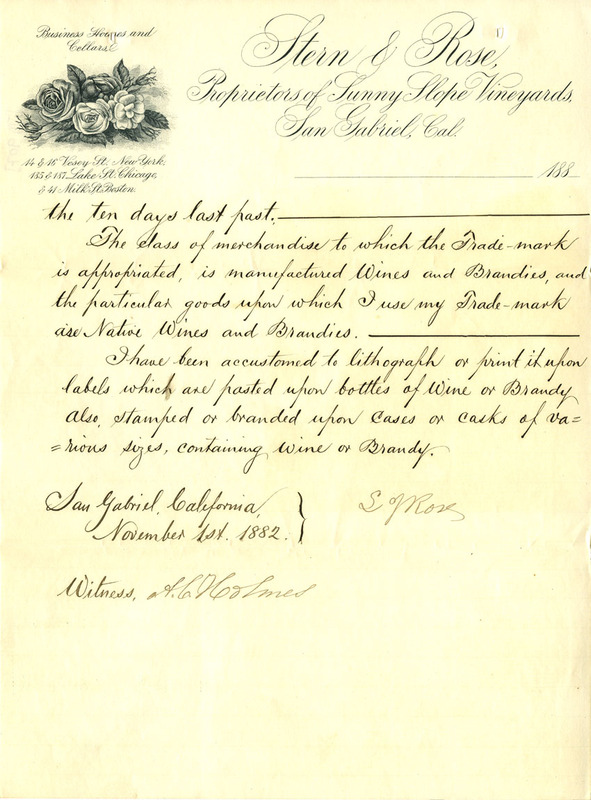 Business Houses and
Cellars.
14 & 16 Vesey St. New York,
185 & 187 Lake St. Chicago,
& 41 Milk St. Boston.
Stern & Rose,
Proprietors of Sunny Slope Vineyards,
San Gabriel, Cal.
188
the ten days last past.
The class of merchandise to which the Trade-mark
is appropriated, is manufactured Wines and Brandies, and
the particular goods upon which I use my Trade-mark
are Native Wines and Brandies.
I have been accustomed to lithograph or print it upon
labels which are pasted upon bottles of Wine or Brandy
also, stamped or branded upon cases or casks of va=
=rious sizes, containing Wine or Brandy.
San Gabriel, California,
November 1st. 1882.
L J Rose
Witness, A. C. Holmes